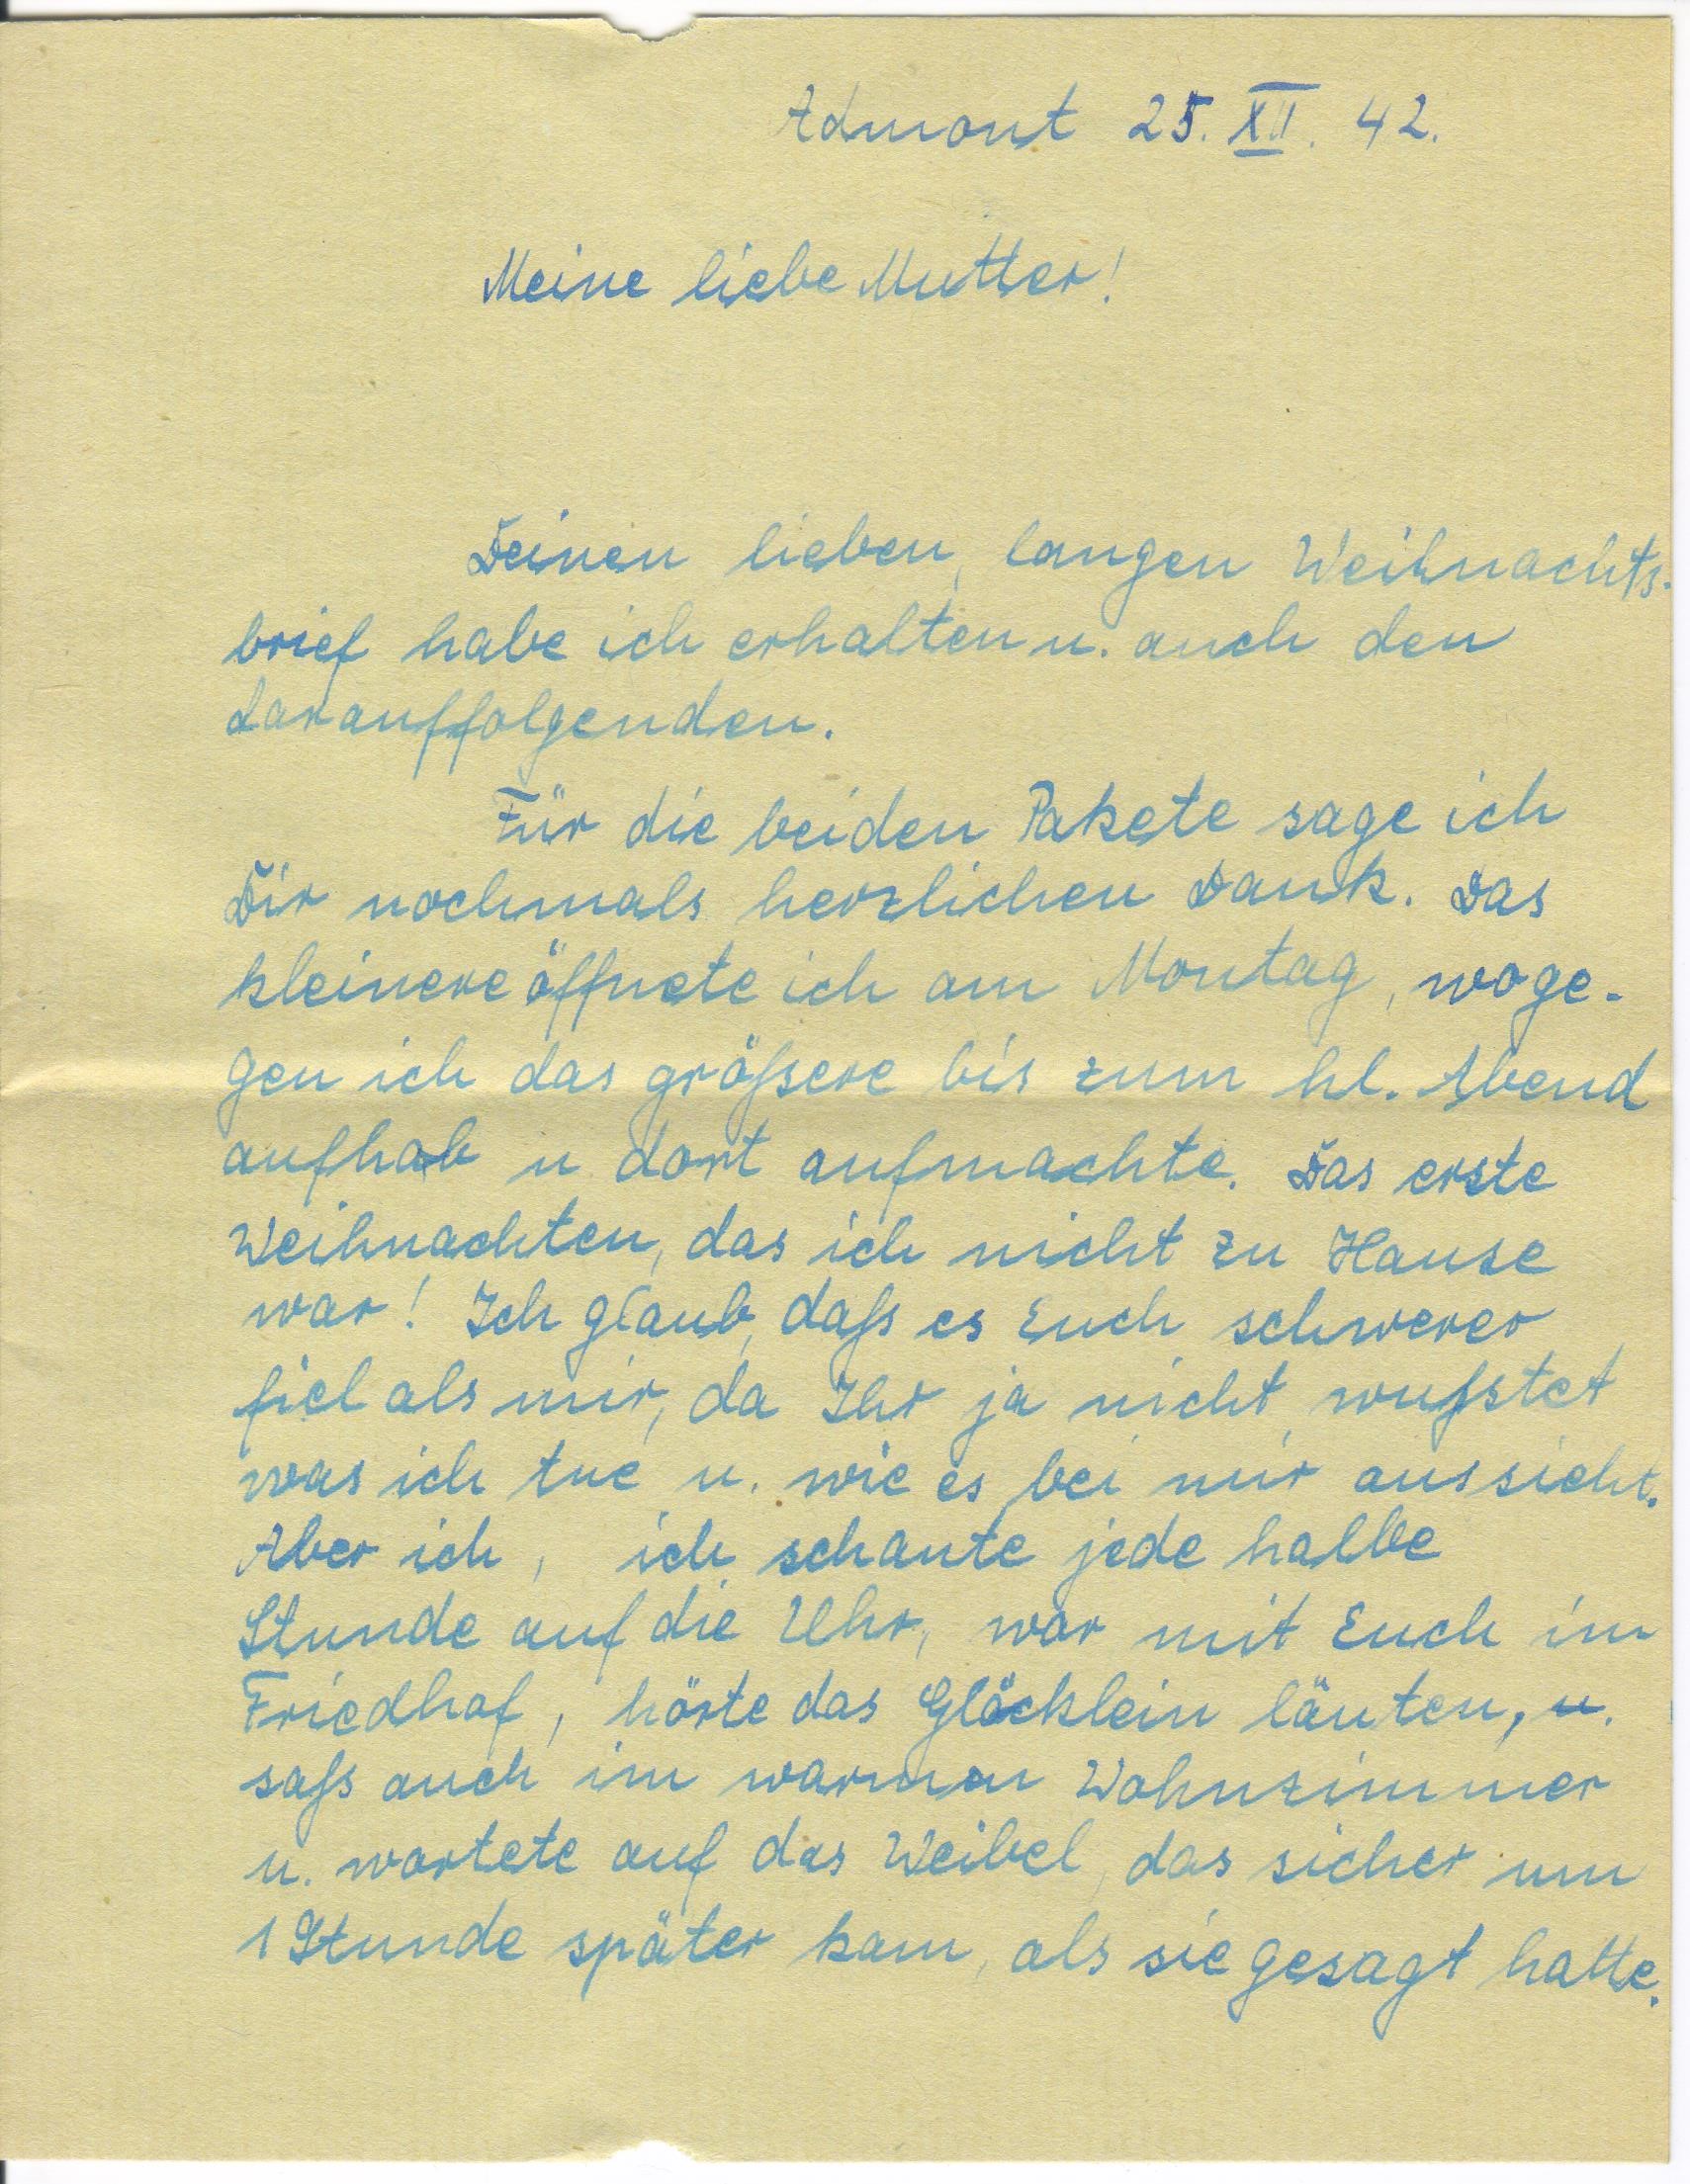 Admont 25. XII. 42.
Meine liebe Mutter!
Deinen lieben, langen Weihnachts-
brief habe ich erhalten u. auch den
darauffolgenden.
Für die beiden Pakete sage ich
Dir nochmals herzlichen Dank. Das
kleinere öffnete ich am Montag, woge-
gen ich das größere bis zum hl. Abend
aufhob u dort aufmachte. Das erste
Weihnachten, das ich nicht zu Hause
war! Ich glaub, daß es Euch schwerer
fiel als mir, da Ihr ja nicht wußtet
was ich tue u. wie es bei mir aussieht.
Aber ich, ich schaute jede halbe
Stunde auf die Uhr, war mit Euch im
Friedhof, hörte das Glöcklein läuten, u.
saß auch im warmen Wohnzimmer
u. wartete auf das Weibel, das sicher um
1 Stunde später kam, als sie gesagt hatte.